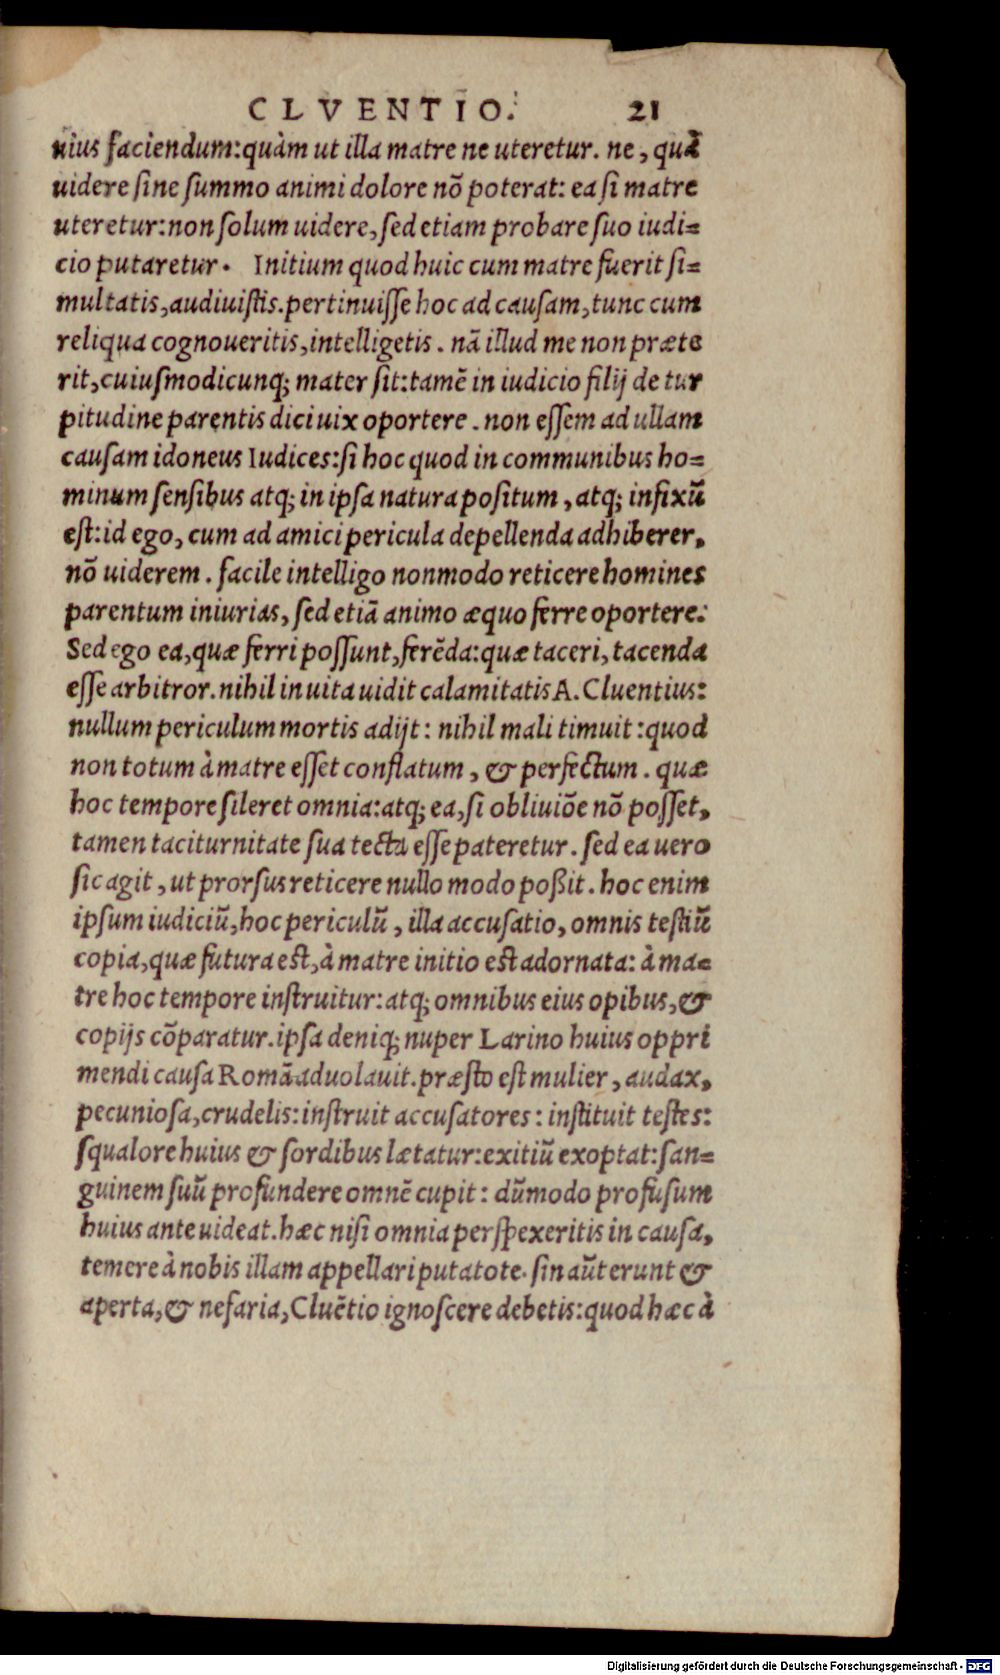 CLVENTIO. 21
uius faciendum:quàm ut illa matre ne uteretur. ne, quã
uidere sine summo animi dolore nõ poterat: ea si matre
uteretur:non solum uidere, sed etiam probare suo iudi=
cio putaretur. Initium quod huic cum matre fuerit si=
multatis,audiuistis.pertinuisse hoc ad causam,tunc cum
reliqua cognoueritis,intelligetis. nã illud me non præte
rit,cuiusmodicunq; mater sit:tamẽ in iudicio filij de tur
pitudine parentis dici uix oportere. non essem ad ullam
causam idoneus Iudices:si hoc quod in communibus ho=
minum sensibus atq; in ipsa natura positum, atq; infixũ
est:id ego, cum ad amici pericula depellenda adhiberer,
nõ uiderem. facile intelligo nonmodo reticere homines
parentum iniurias, sed etiã animo æquo ferre oportere.
Sed ego ea,quæ ferri possunt,ferẽda:quæ taceri,tacenda
esse arbitror.nihil in uita uidit calamitatis A. Cluentius:
nullum periculum mortis adijt: nihil mali timuit:quod
non totum à matre esset conflatum, & perfectum. quæ
hoc tempore sileret omnia:atq; ea,si obliuiõe nõ posset,
tamen taciturnitate sua tecta esse pateretur. sed ea uero
sic agit, ut prorsus reticere nullo modo poßit. hoc enim
ipsum iudiciũ,hoc periculũ, illa accusatio, omnis testiũ
copia,quæ futura est,à matre initio est adornata: à ma=
tre hoc tempore instruitur:atq; omnibus eius opibus,&
copijs cõparatur.ipsa deniq; nuper Larino huius oppri
mendi causa Romã aduolauit.præsto est mulier, audax,
pecuniosa,crudelis:instruit accusatores: instituit testes:
squalore huius & sordibus lætatur:exitiũ exoptat:san=
guinem suũ profundere omnẽ cupit: dũmodo profusum
huius ante uideat.hæc nisi omnia perspexeritis in causa,
temere à nobis illam appellari putatote. sin aũt erunt &
aperta,& nefaria,Cluẽtio ignoscere debetis:quod hæc à
Digitalisierung gefördert durch die Deutsche Forschungsgemeinschaft - DFG